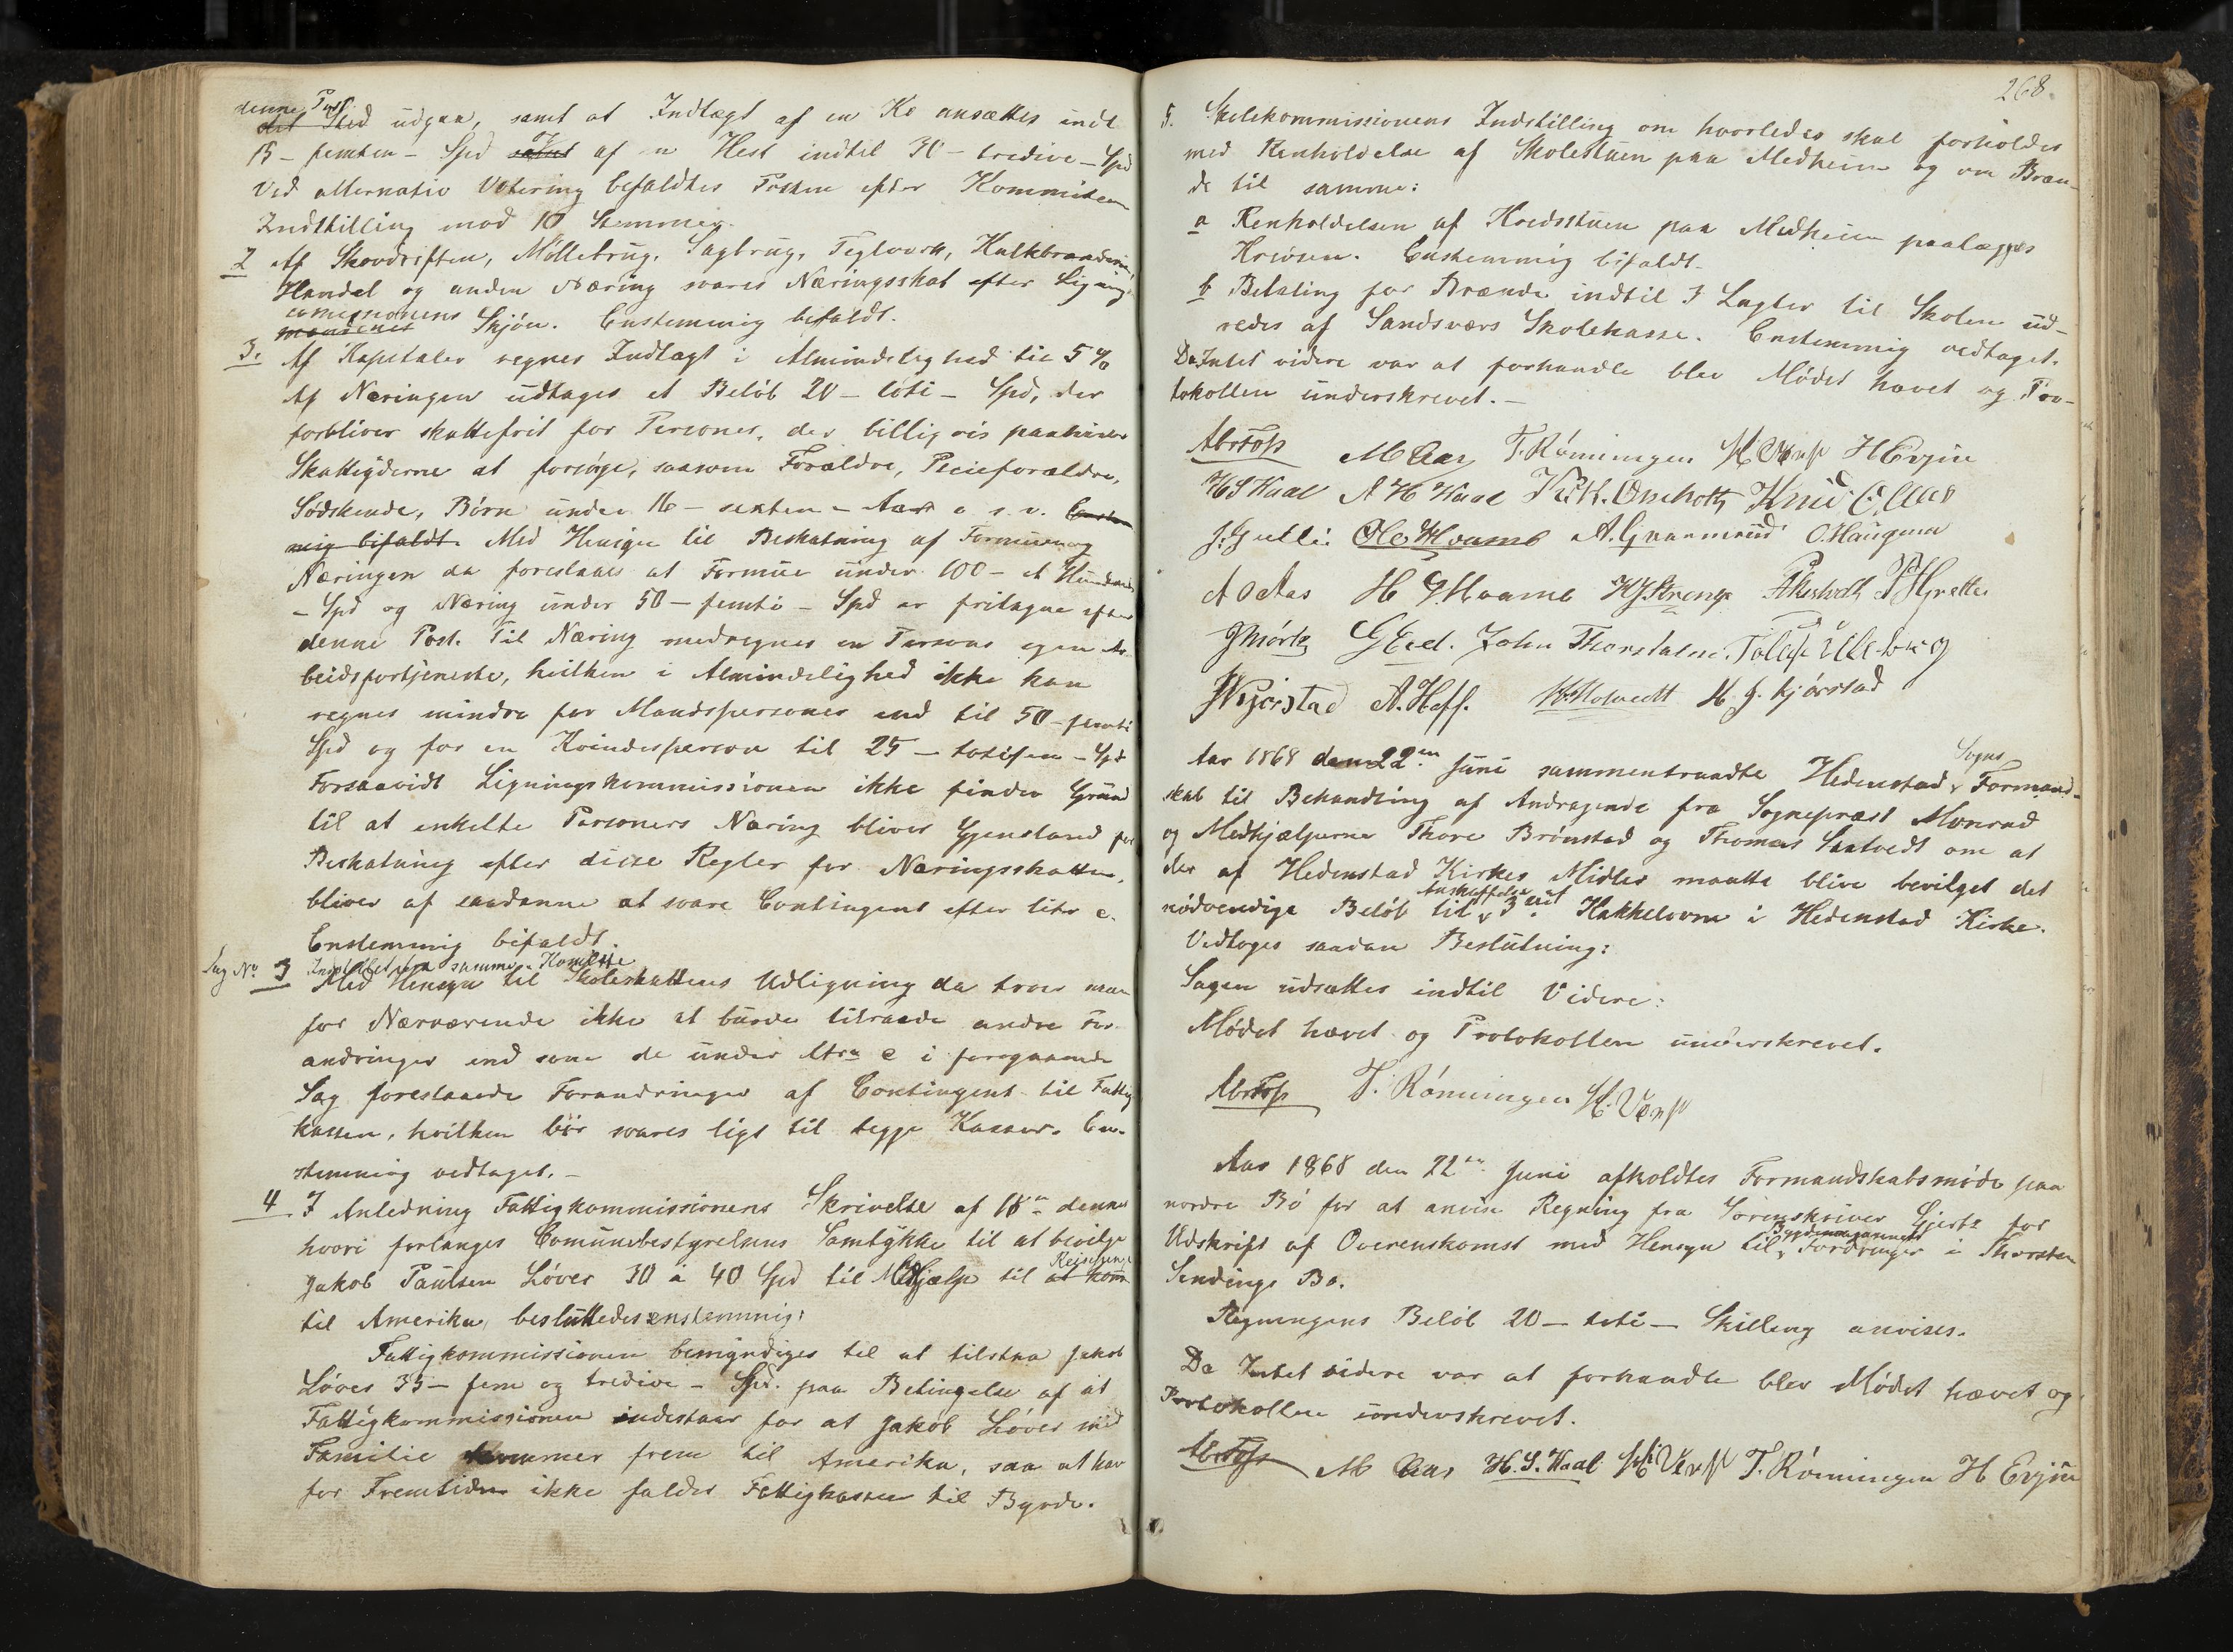 denne Post
det Sted udgaa, samt at Indtægt af en Ko ansættes indt
15 - femten - Spd samt og af en Hest indtil 30 - tredive - Spd
Ved alternativ Votering bifaldtes Posten efter Kommiteen
Indstilling mod 10 Stemmer.
2 Af Skovdriften, Møllebrug, Sagbrug, Teglværk, Kalkbrænderi,
Handel og anden Næring svares Næringsskat efter Lignings
comissionens
mændenes Skjøn. Enstemmig bifaldt.
3. Af Kapitaler regnes Indtægt i Almindelighed til 5 %
Af Næringen udtages et Beløb 20 - toti - Spd, der
forbliver skattefrit for Personer, der billigvis paahviler
Skatteyderne at forsørge, saasom Forældre, Pleieforældre,
Sødskende, Børn under 16 - sexten - Aar o. s. v. Enstem
mig bifaldt. Med Hensyn til Beskatning af Formue og
Næringen da foreslaaes at Formue under 100 - et Hundrede
- Spd og Næring under 50 - femti - Spd er fritagne efter
denne Post. Til Næring medregnes en Persons egen Ar-
beidsfortjeneste, hvilken i Almindelighed ikke kan
regnes mindre for Mandspersoner end til 50 - femti
Spd og for en Kvindesperson til 25 - totifem - Spd
Forsaavidt Ligningskommissionen ikke finder Grund
til at enkelte Personers Næring bliver Gjenstand for
Beskatning efter disse Regler for Næringsskatten,
bliver af saadanne at svare Contingent efter litr c.
Enstemmig bifaldt.
Sag No 3 Indstillet fra samme Komitte
Med Hensyn til Skoleskattens Udligning da troer man
for Nærværende ikke at burde tilraade andre For-
andringer end som de under litra c i foregaaende
Sag foreslaaede Forandringer af Contingent til Fattig
kassen, hvilken bør svares ligt til begge Kasser. En-
stemmig vedtaget. -
4 I Anledning Fattigkommissionens Skrivelse af 18de dennes
hvori forlanges Comunebestyrelsens Samtykke til at bevilge
Jakob Paulsen Løver 30 a 40 Spd til Medhjælp til at kom Reisepenge
til Amerika, besluttedes enstemmig:
Fattigkommissionen bemyndiges til at tilstaa Jakob
Løver 35 - fem og tredive - Spd. paa Betingelse af at
Fattigkommissionen indestaar for at Jakob Løver med
Familie kommer frem til Amerika, saa at han
for Fremtiden ikke falder Fattigkassen til Byrde.
268.
5. Skolekommissionens Indstilling om hvorledes skal forholdes
med Renholdelse af Skolestuen paa Medheim og om Bræn-
de til samme:
a Renholdelsen af Kredsstuen paa Medheim paalægges
Kredsen. Enstemmig bifaldt.
b Betaling for Brænde indtil 3 Lagter til Skolen ud-
redes af Sandsværs Skolekasse. Enstemmig vedtaget.
Da Intet videre var at forhandle blev Mødet hævet og Pro-
tokollen underskrevet. -
M Aas T. Rømningen H Evju
H S Haal A H Haal
J. Gulli: Ole Hvamb A. Granmund O. Haugen
A O Aas H G Hvame
John Thorstensen
A. Hoff. H. J. Kjørstad
Aar 1868 den 22en Juni sammentraadte Hedenstad Sogns Formand-
skab til Behandling af Andragende fra Sognepræst Monrad
og Medhjælperne Thore Brønstad og Thomas Saatvedt om at
der af Hedenstad Kirkes Midler maatte blive bevilget det
nødvendige Beløb til Anskaffelse af 3 Kakkelovne i Hedenstad Kirke.
Vedtoges saadan Beslutning:
Sagen udsættes indtil Videre:
Mødet hævet og Protokollen underskrevet.
T. Rømningen
Aar 1868 den 22en Juni afholdtes Formandskabsmøde paa
nordre Bø for at anvise Regning fra Sorenskriver Gjerts for
Udskrift af Overenskomst med Hensyn til Bygdemagasinets Fordringer i Thorsten
Sendings Bo.
Regningens Beløb 20 - toti - Skilling anvises.
Da Intet videre var at forhandle blev Mødet hævet og
Protokollen underskrevet.
M Aas H. S. Haal T. Rømningen H Evju